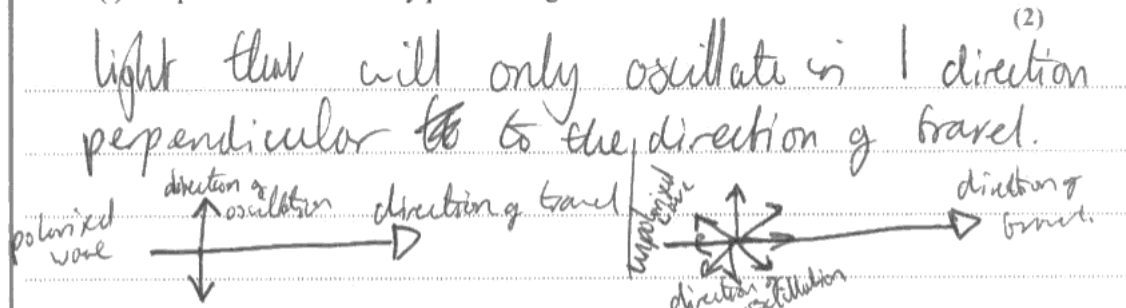 (2)
light that will only oscillate in 1 direction
perpendicular to the direction of travel.
polarised wave
direction of oscillation
direction of travel
unpolarised wave
direction of travel.
direction of oscillation